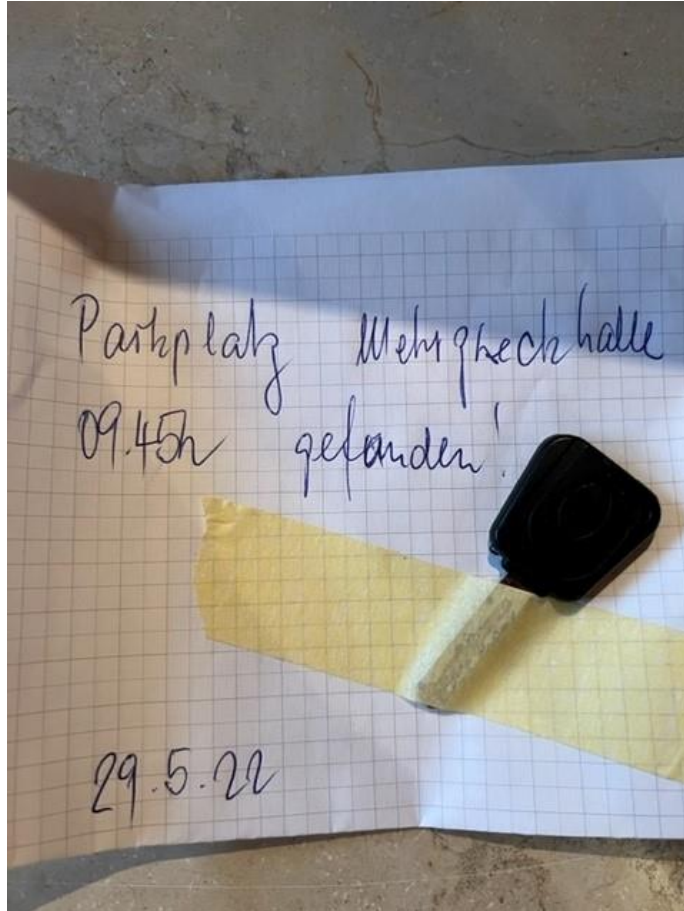 Parkplatz Mehrzweckhalle
09.45h gefunden!
29.5.22